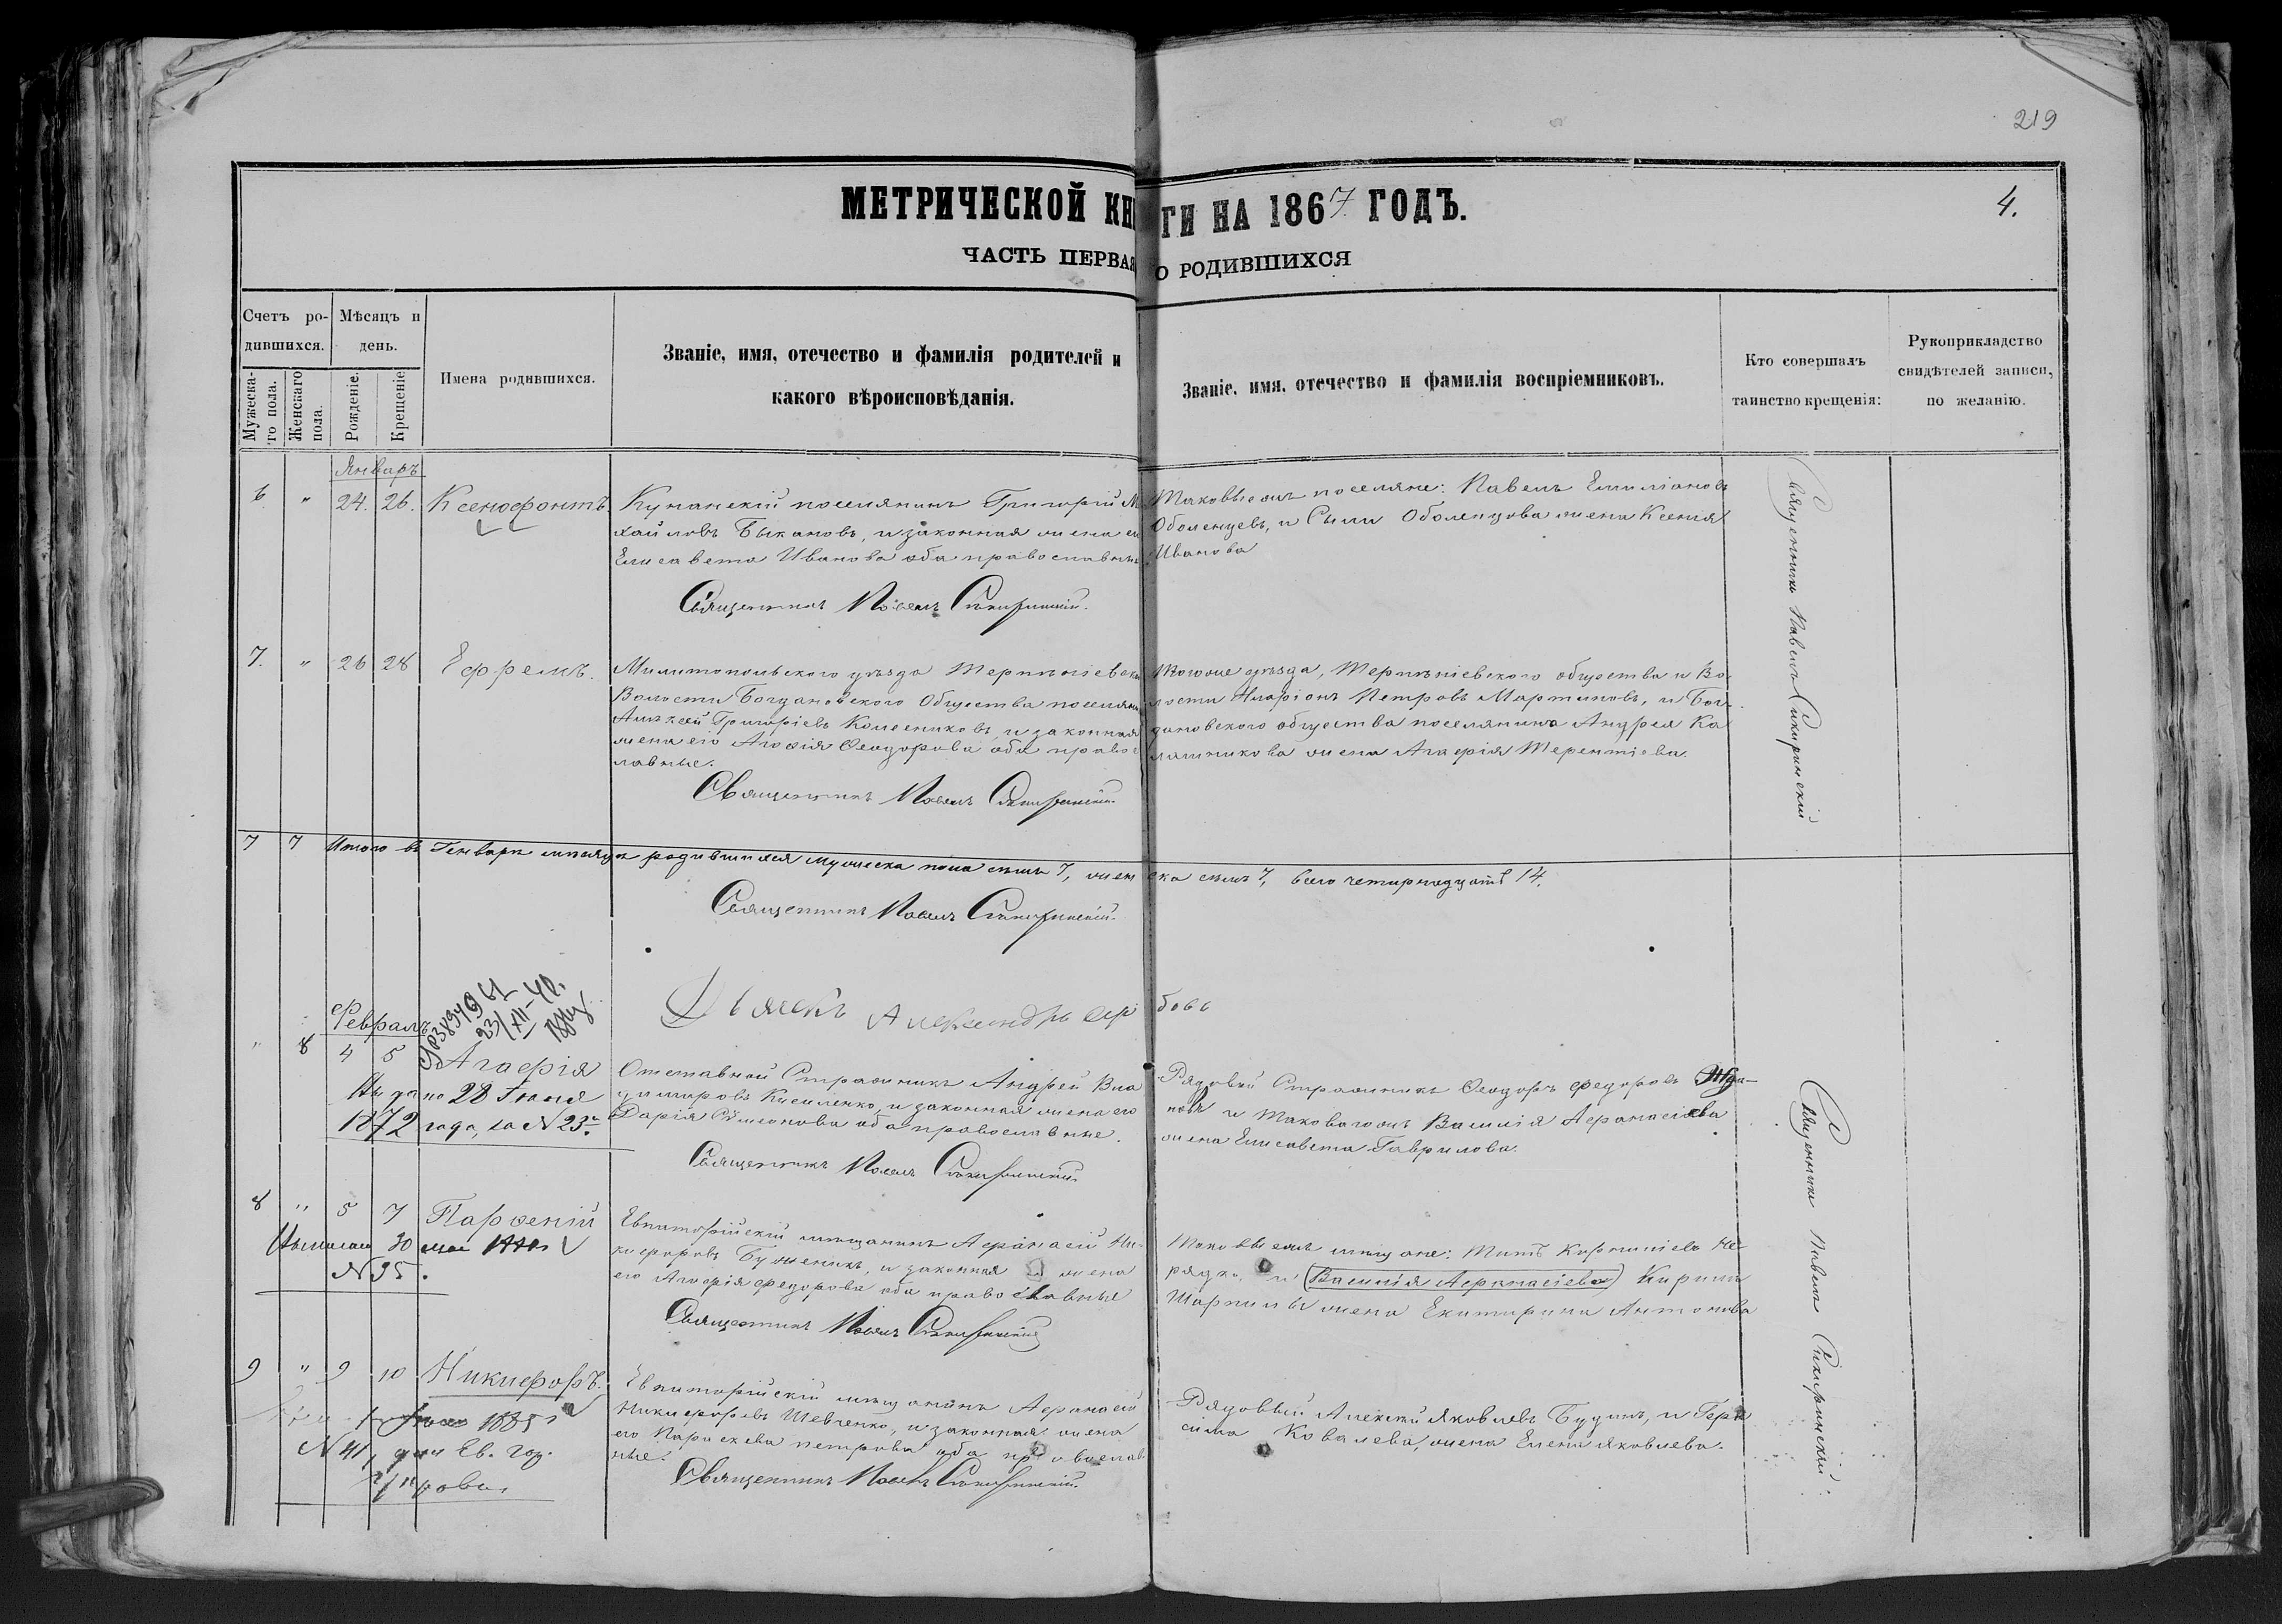 219
МЕТРИЧЕСКОЙ КНИГИ НА 1867 ГОДЪ.
4.
ЧАСТЬ ПЕРВАЯ О РОДИВШИХСЯ
Счетъ ро-
дившихся.
Мѣсяцъ и
день.
Мужеска-
го пола.
Женскаго
пола.
Рожденіе.
Крещеніе
Имена родившихся.
Званіе, имя, отечество и фамилія родителей и
какого вѣроисповѣданія.
Званіе, имя, отечество и фамилія воспріемниковъ.
Кто совершалъ
таинство крещенія:
Рукоприкладство
свидѣтелей записи,
по желанію.
Январь
6 " 24. 26. Ксенофонтъ
Купанскій поселянинъ Григорій Ми
хайловъ Быкановъ, и законная жена его
Елисавета Иванова оба православные
Священникъ Павелъ Сикиринскій.
Таковые жъ поселяне: Павелъ Емиліановъ
Оболенцевъ, и Сылы Оболенцова жена Ксенія
Иванова
Священникъ Павелъ Сикиринскій
7. " 26 28 Ефремъ.
Милитопольского уѣзда Терпѣніевской
Волости Богдановского Общества поселянинъ
Алѣксѣй Григоріевъ Колесниковъ, и законная
жена его Агафія Феодорова оба правос
лавные.
Священникъ Павелъ Сикиринскій
Того же уѣзда, Терпѣніевского общества и Во
лости Иларіонъ Петровъ Мартиновъ, и Бог
дановского общества поселянина Андрея Ка
лашникова жена Агафія Терентіева.
7 7 Итого въ Генварѣ мѣсяцѣ родившихся мужеска пола семь 7, женска семь 7, всего четырнадцать 14.
Священникъ Павелъ Сикиринскій.
Дьячекъ Александръ
Февраль
23/XII-40.
" 8 4 5 Агафія
Выдано 28 Іюня
1872 года, за N 23.
Отставной Стражникъ Андрей Вла
диміровъ Киселенко, и законная жена его
Дарія Симеонова оба православные.
Священникъ Павелъ Сикиринскій
Рядовой Стражникъ Феодоръ Федоровъ Жда-
новъ и таковаго жъ Василія Афанасіева
жена Елисавета Гаврилова.
Священникъ Павелъ Сикиринскій
8 " 5 7 Парфеній
30 мая
N 95.
Евпаторійскій мѣщанинъ Афанасій Ни-
кифоровъ Буженикъ, и законная жена
его Агафія Федорова оба православные
Священникъ Павелъ Сикиринскій
Таковые жъ мѣщане: Титъ Корниліевъ Не
рядко, и Василія Афанасіева Кирила
Шарпила жена Екатирина Антонова
9 " 9 10 Никифоръ.
1885
N 41, для Ев. Гор.
Управы.
Евпаторійскій мѣщанинъ Афанасій
Никифоровъ Шевченко, и законная жена
его Параскева Петрова оба православ
ные.
Священникъ Павелъ Сикиринскій
Рядовый Алексѣй Яковлевъ Будинъ, и Гера
сима Ковалева, жена Елена Яковлева.